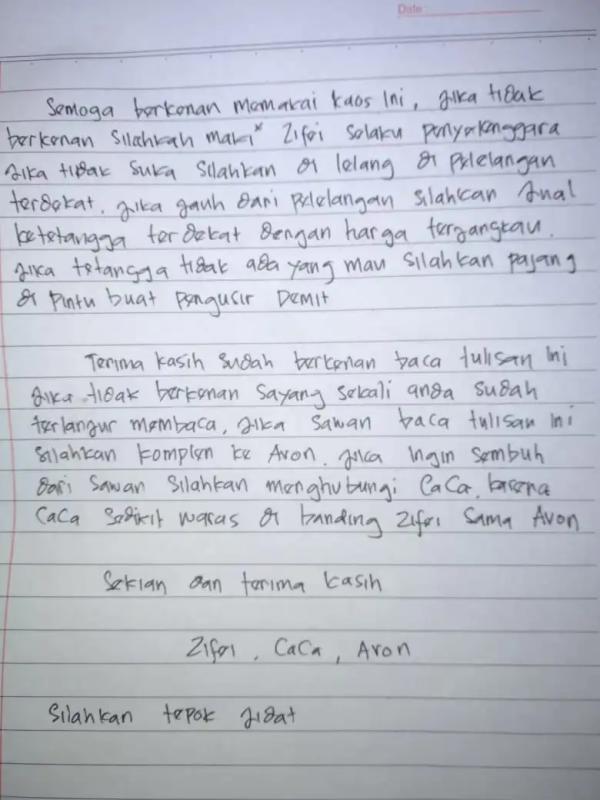 Date :
Semoga berkenan memakai kaos ini, jika tidak
berkenan silahkah maki" Zifdi selaku penyelenggara
jika tidak suka silahkan di lelang di pelelangan
terdekat. jika jauh dari pelelangan silahkan jual
ketetangga terdekat dengan harga terjangkau.
jika tetangga tidak ada yang mau silahkan pajang
di pintu buat pengusir Demit
Terima kasih sudah berkenan baca tulisan ini
jika tidak berkenan sayang sekali anda sudah
terlanjur membaca, jika sawan baca tulisan ini
silahkan komplen ke Avon. jika ingin sembuh
dari sawan silahkan menghubungi CaCa, karena
CaCa sedikit waras di banding Zifdi sama Avon
Sekian dan terima kasih
Zifdi, CaCa, Avon
Silahkan tepok jidat